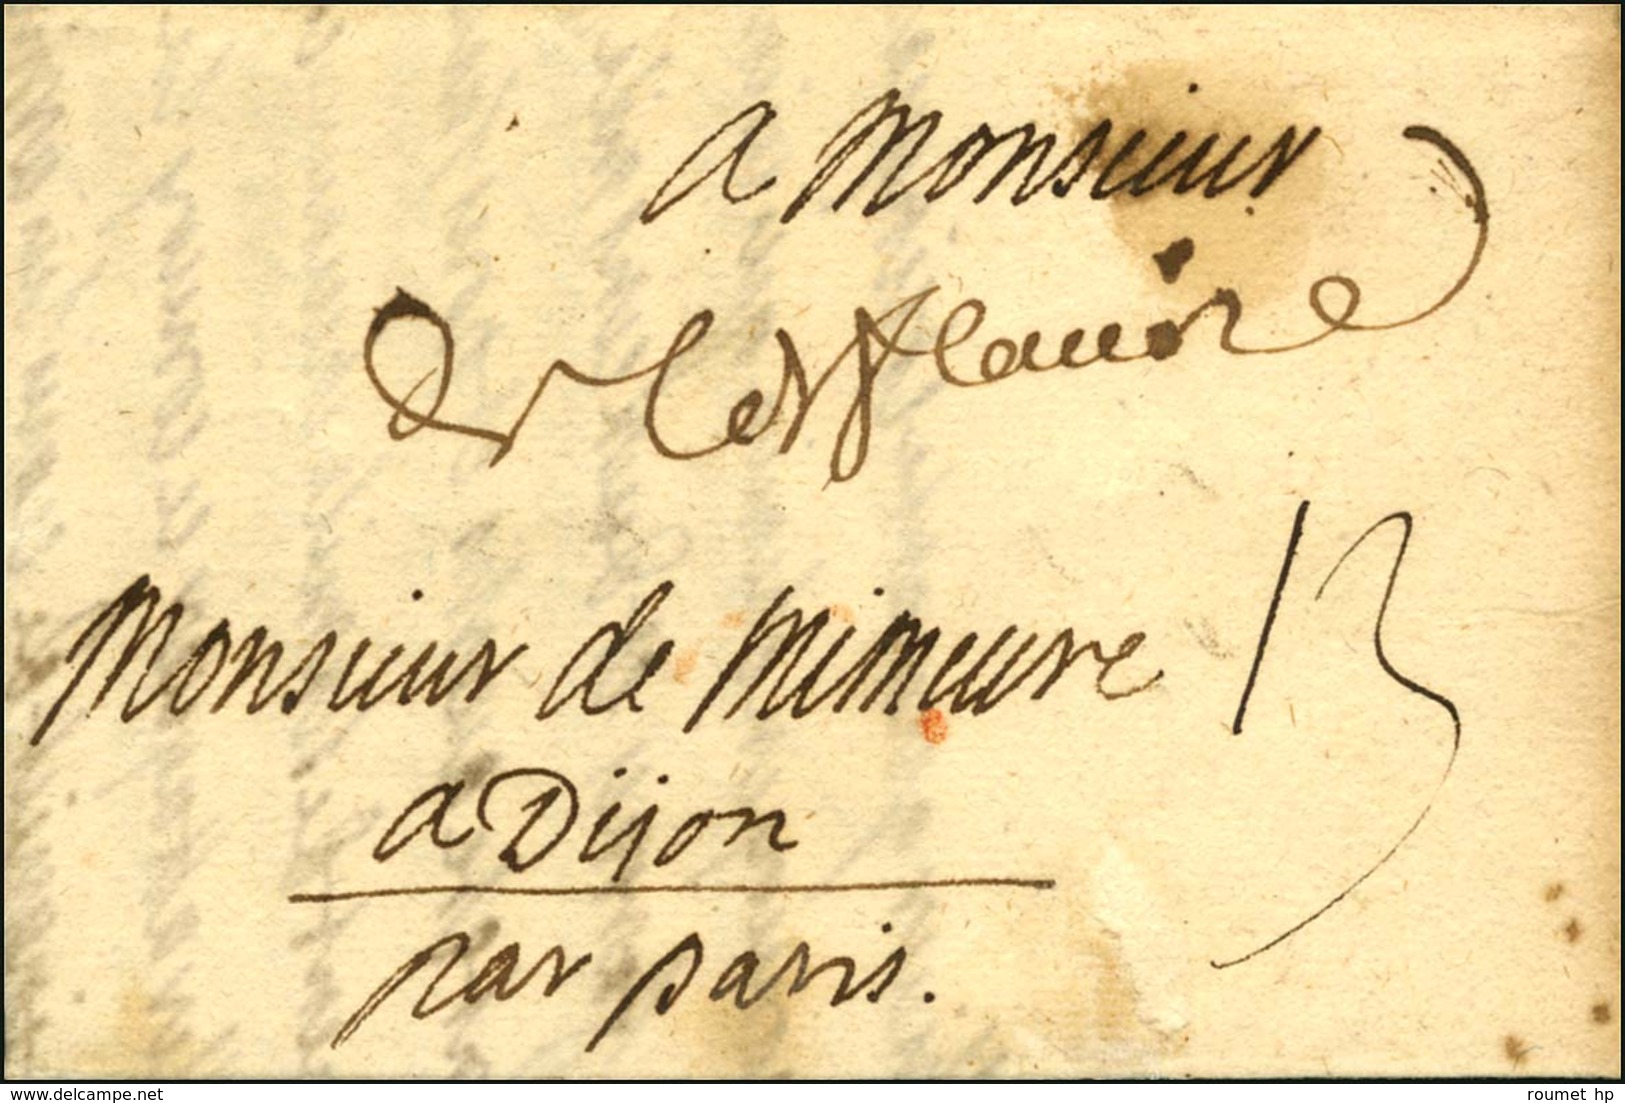 a Monsieur
de
Monsieur de Mimeure 13
a Dijon
par paris.
www.delcampe.net
roumet hp